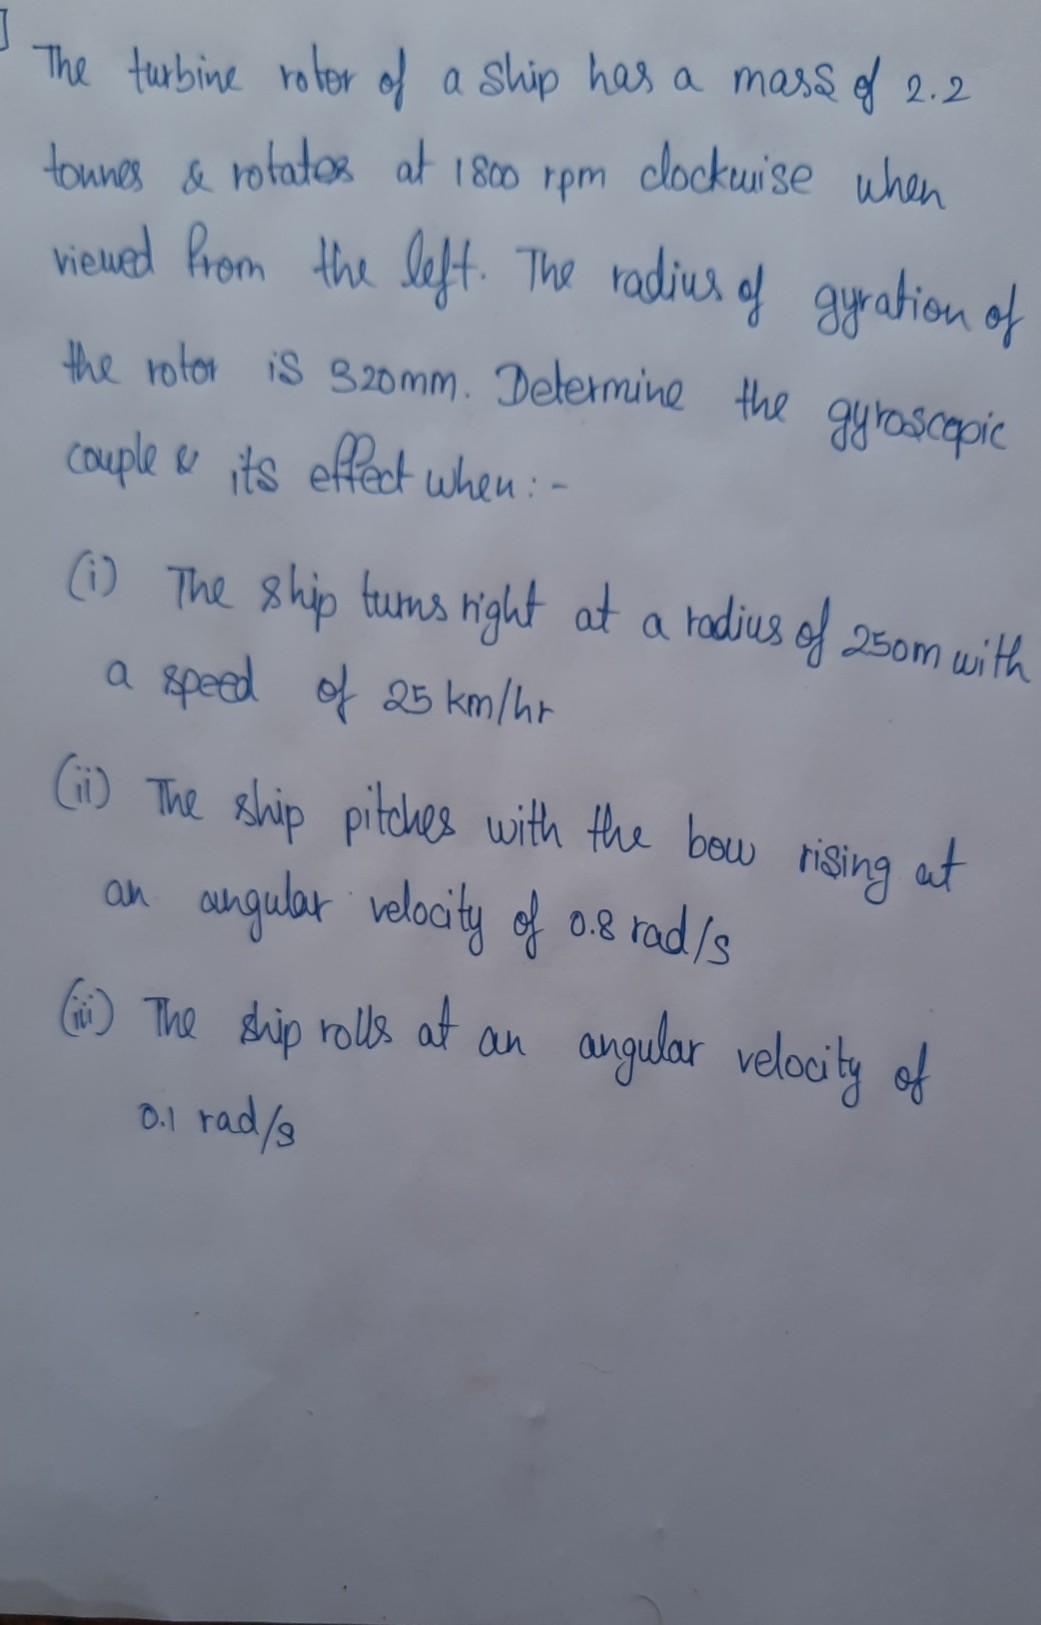 The turbine rotor of a ship has a mass of 2.2
tonnes & rotates at 1800 rpm clockwise when
viewed from the left. The radius of gyration of
the rotor is 320mm. Determine the gyroscopic
couple & its effect when :-
(i) The ship turns right at a radius of 250m with
a speed of 25 km/hr
(ii) The ship pitches with the bow rising at
an angular velocity of 0.8 rad/s
(iii) The ship rolls at an angular velocity of
0.1 rad/s